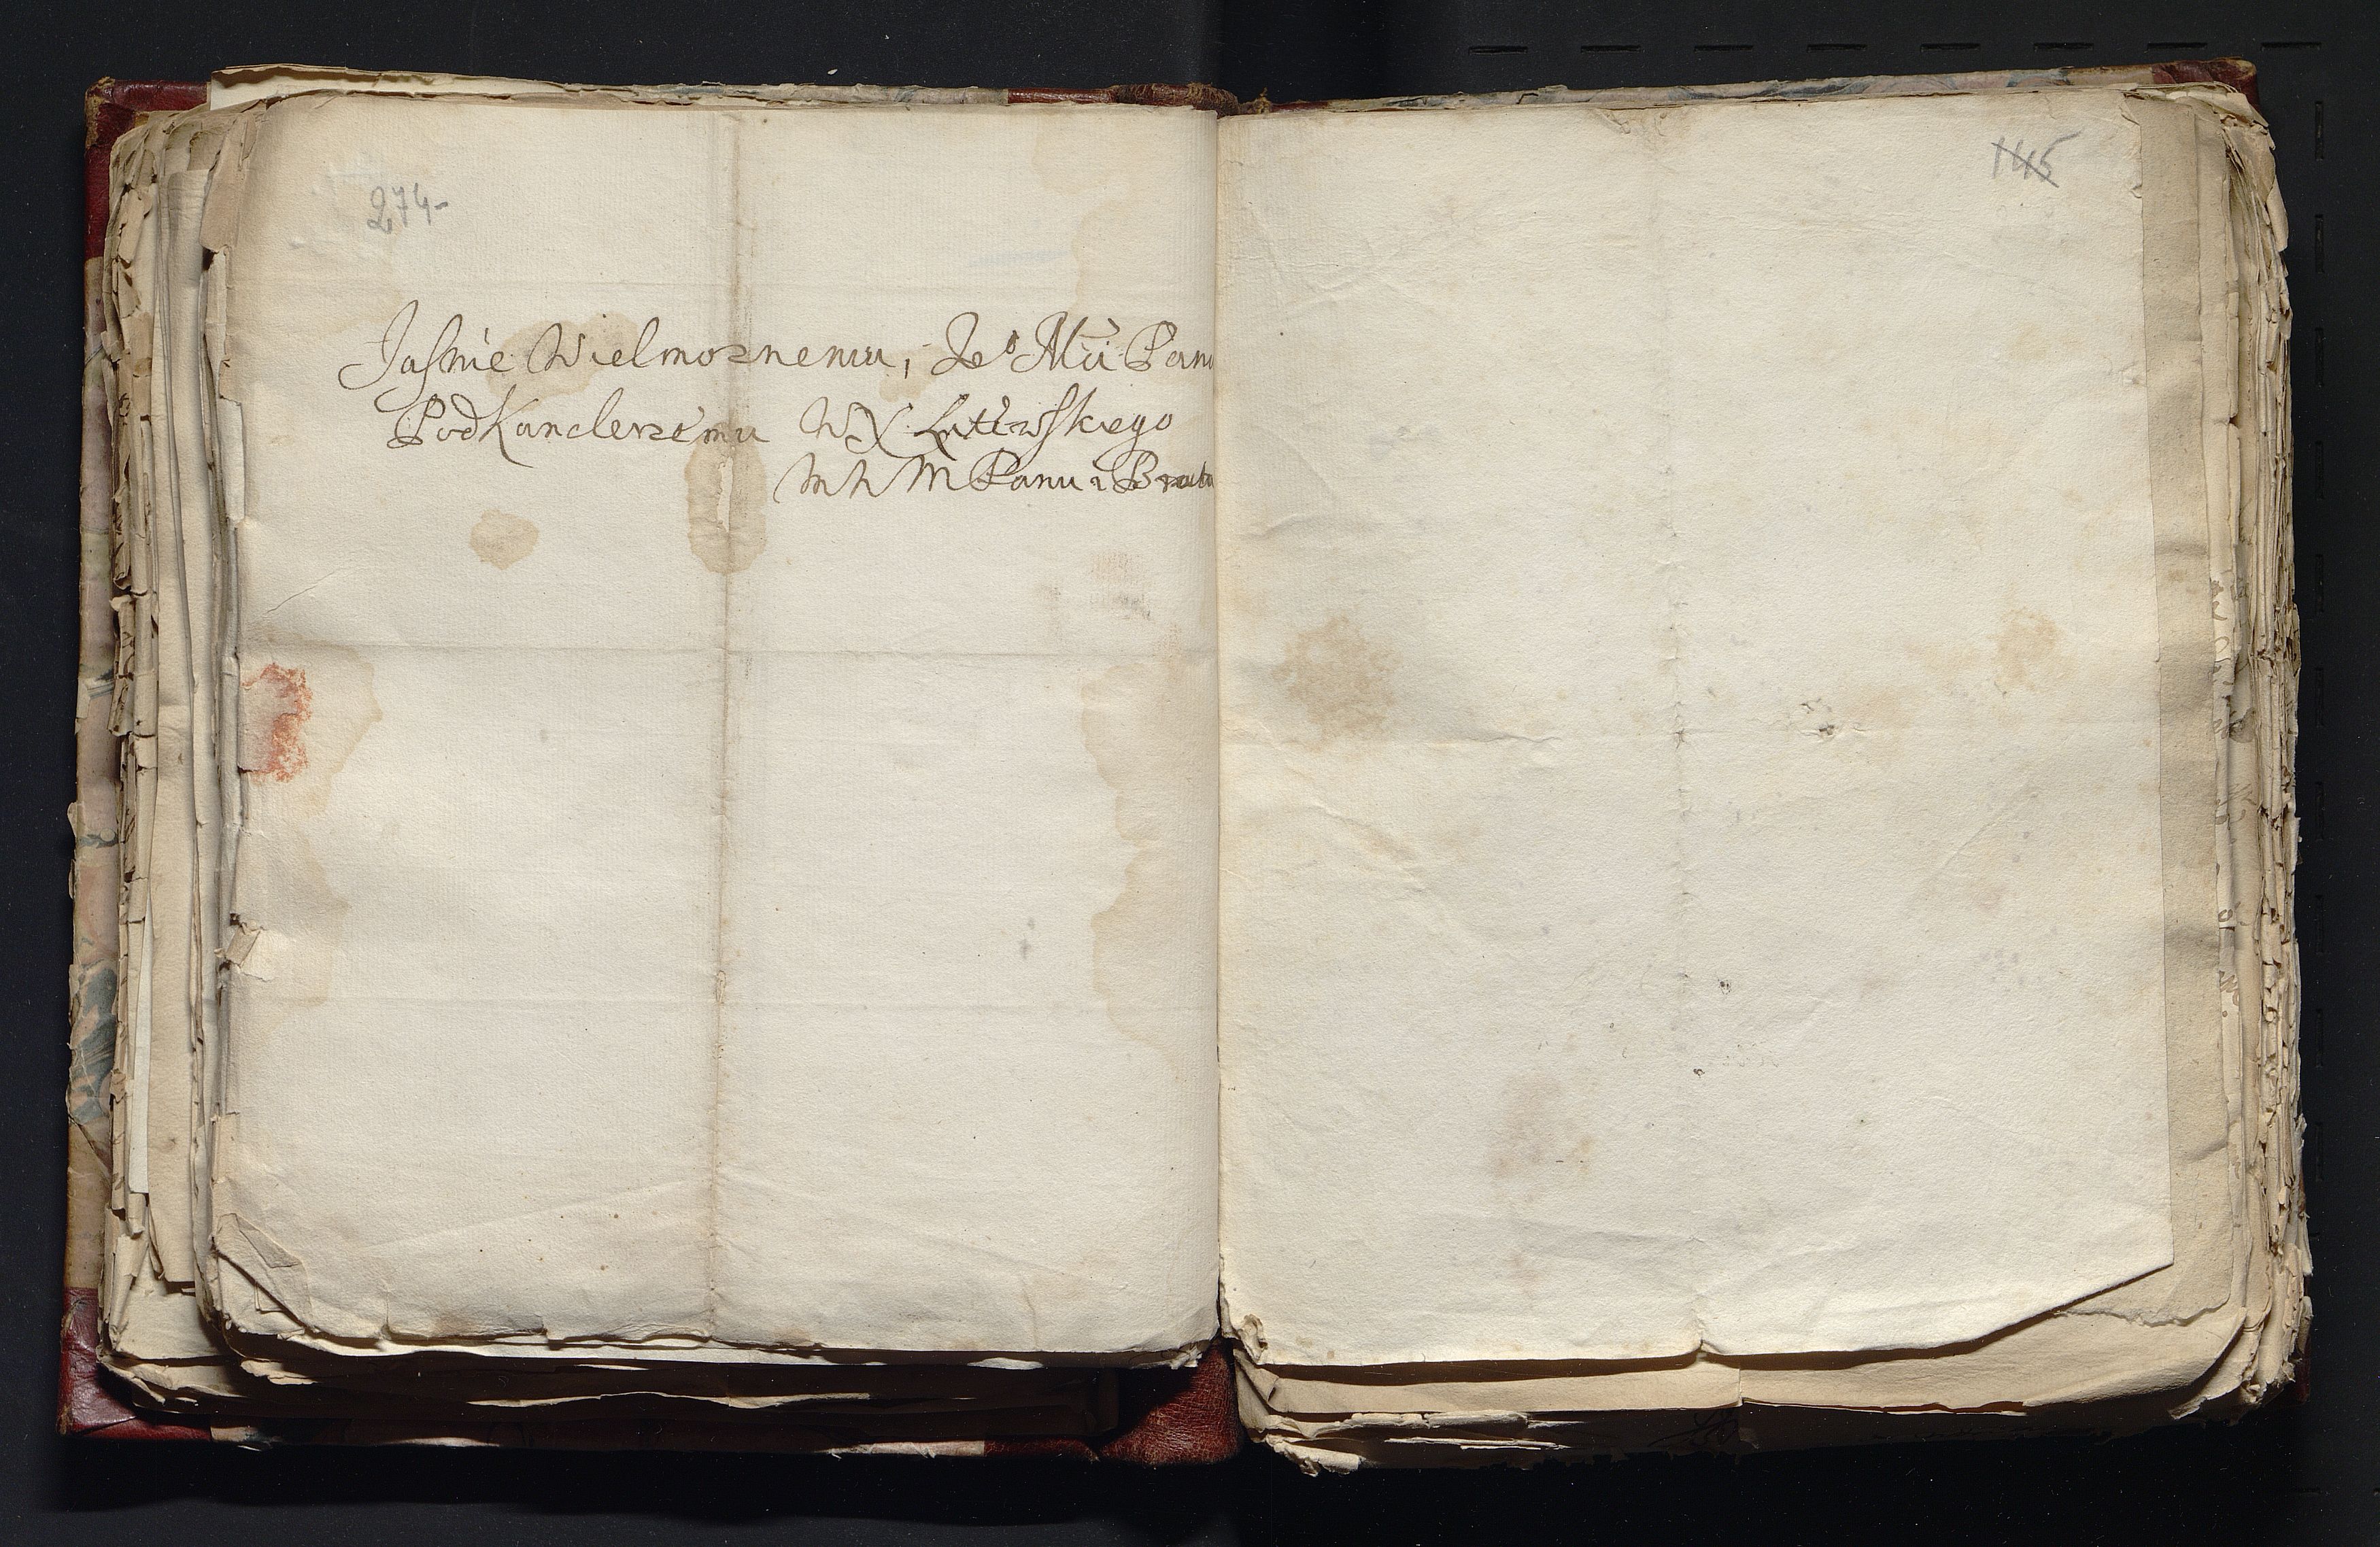 274
Jaśnie Wielmożnemu, Je⁰ Mci Panu
PodKanclerzemu WX Litewskiego
M M Panu i Bratu
145